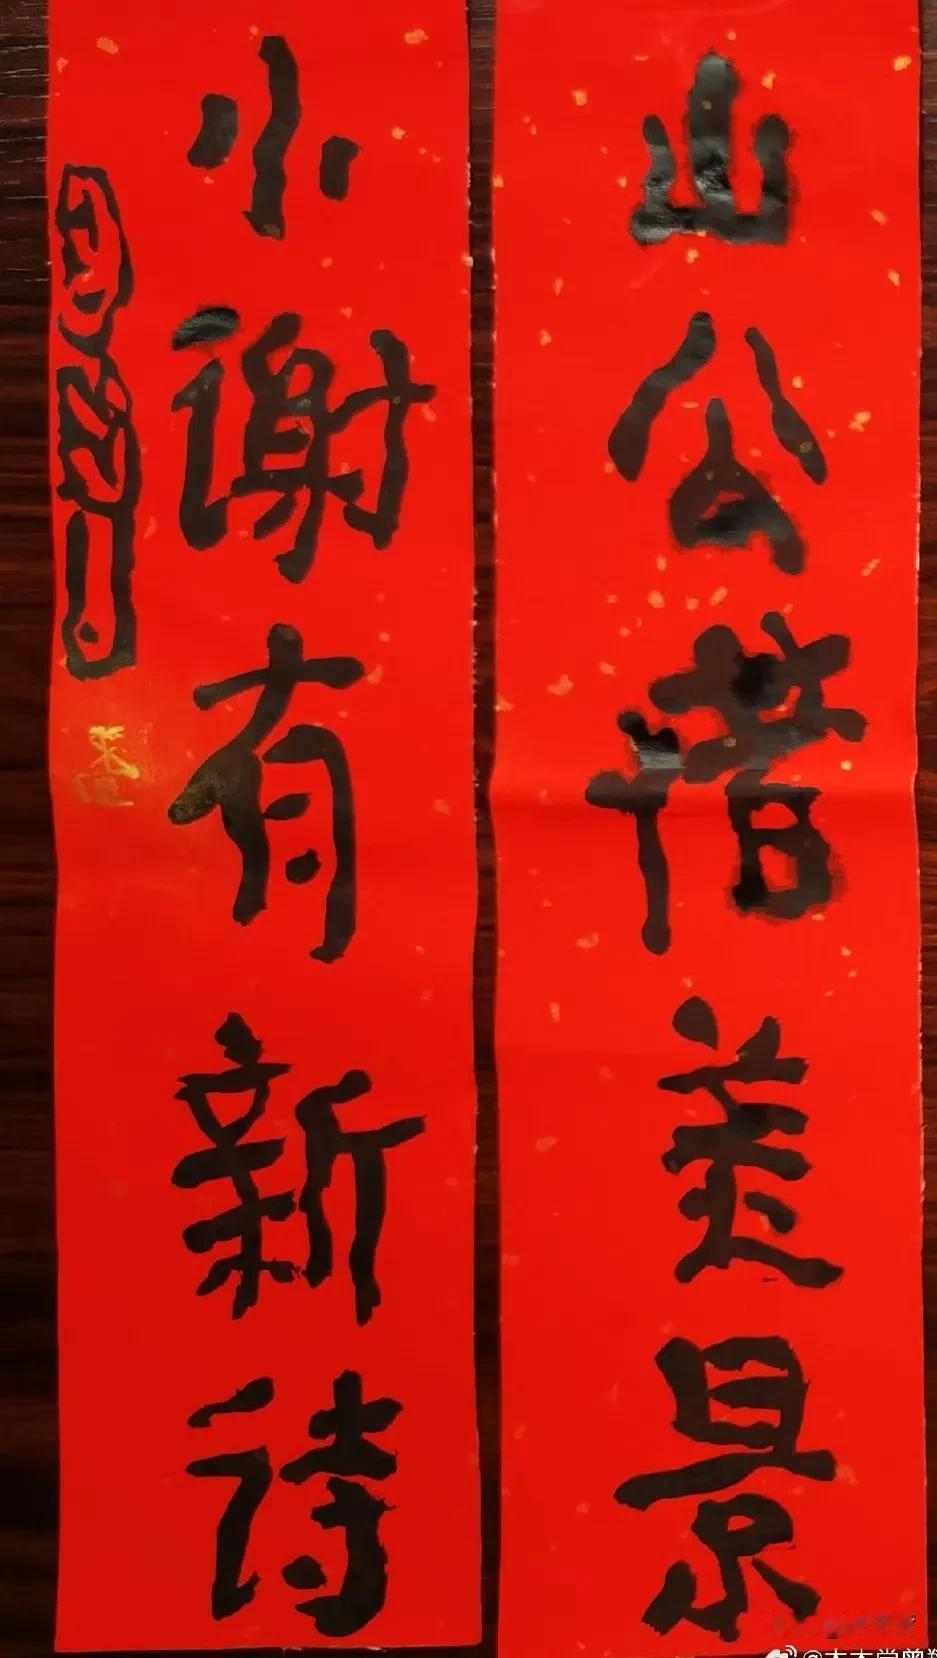 山公惜美景
小谢有新诗